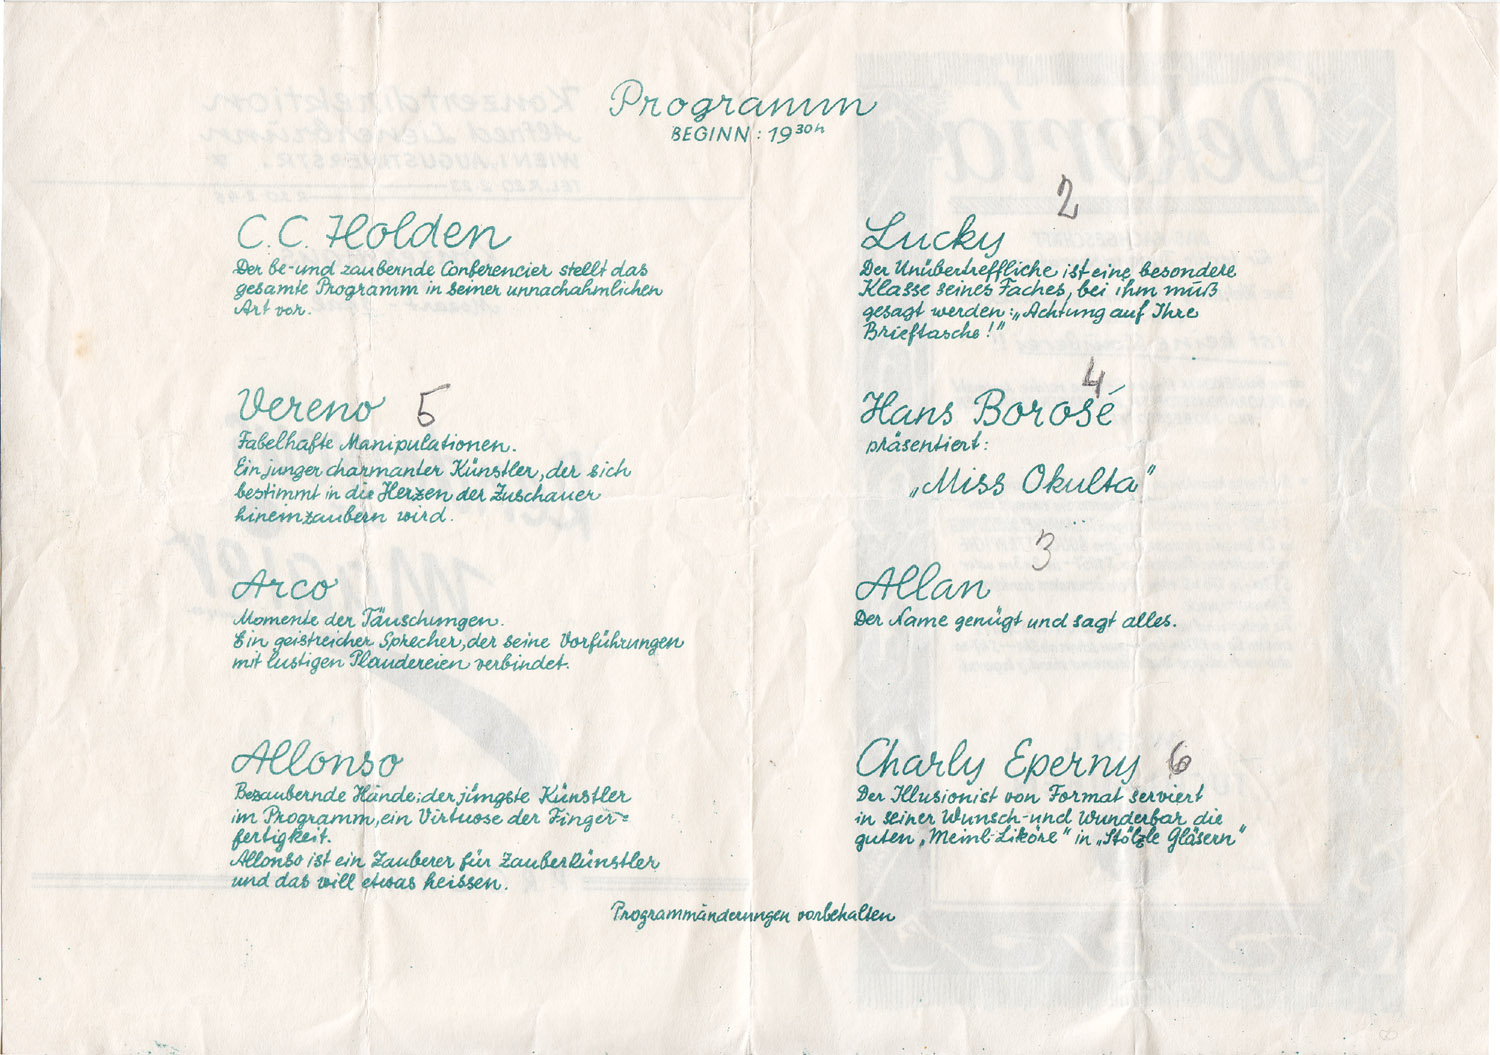 Programm
BEGINN: 19 30h
C.C. Holden
Der be- und zaubernde Conferencier stellt das
gesamte Programm in seiner unnachahmlichen
Art vor.
Vereno 5
Fabelhafte Manipulationen.
Ein junger charmanter Künstler, der sich
bestimmt in die Herzen der Zuschauer
hineinzaubern wird.
Arco
Momente der Täuschungen.
Ein geistreicher Sprecher, der seine Vorführungen
mit lustigen Plaudereien verbindet.
Allonso
Bezaubernde Hände; der jüngste Künstler
im Programm, ein Virtuose der Finger=
fertigkeit.
Allonso ist ein Zauberer für Zauberkünstler
und das will etwas heissen.
2
Lucky
Der Unübertreffliche ist eine besondere
Klasse seines Faches, bei ihm muß
gesagt werden: „Achtung auf Ihre
Brieftasche!"
4
Hans Borosé
präsentiert:
„Miss Okulta"
3
Allan
Der Name genügt und sagt alles.
Charly Eperny 6
Der Illusionist von Format serviert
in seiner Wunsch- und Wunderbar die
guten „Meinl-Liköre" in „Stölzle Gläsern"
Programmänderungen vorbehalten